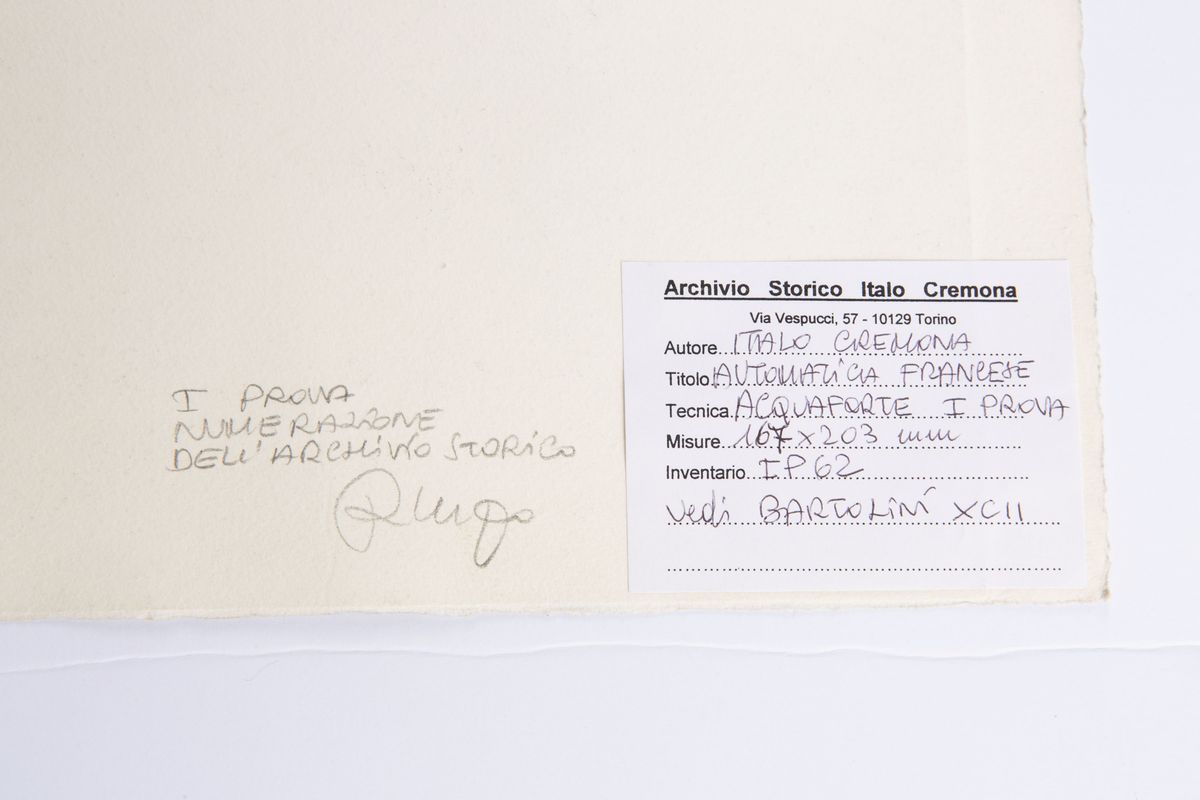 I PROVA
NUMERAZIONE
DELL'ARCHIVIO STORICO
Archivio Storico Italo Cremona
Via Vespucci, 57 - 10129 Torino
Autore ITALO CREMONA
Titolo AUTOMATICA FRANCESE
Tecnica ACQUAFORTE I PROVA
Misure 167x203 mm
Inventario IP62
Vedi BARTOLINI XCII